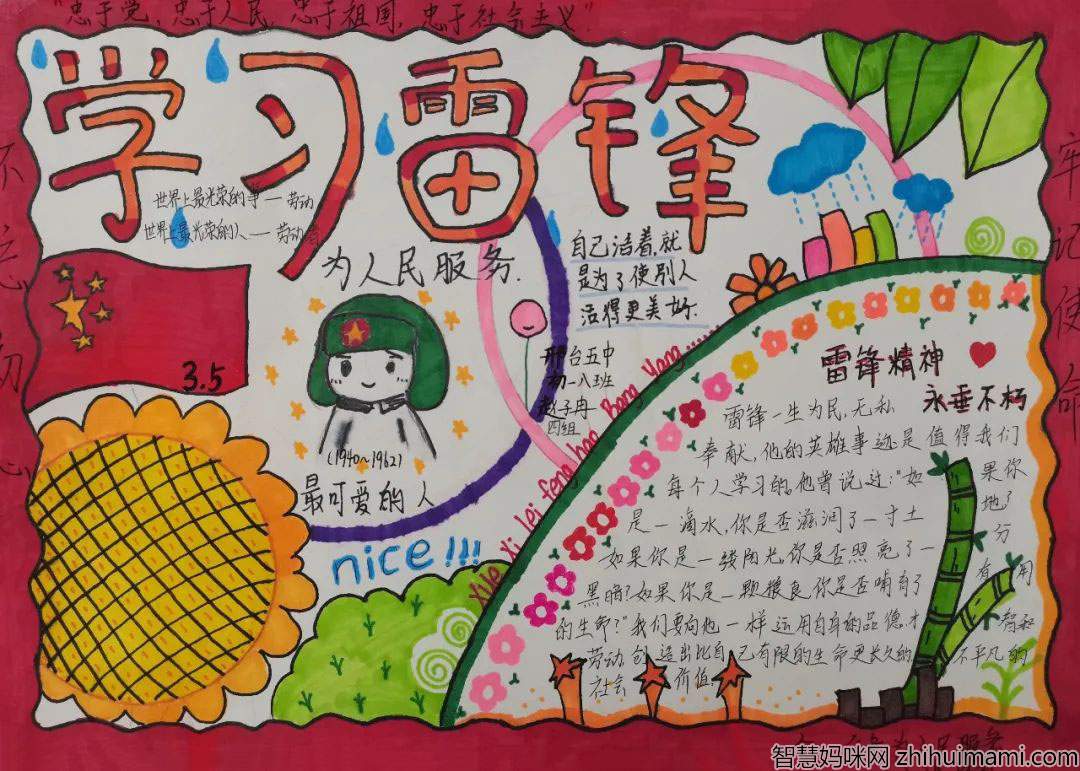 "忠于党，忠于人民，忠于祖国，忠于社会主义"
学习雷锋
世界上最光荣的事——劳动
世界上最光荣的人——劳动者
为人民服务.
自己活着,就
是为了使别人
活得更美好.
3.5
(1940~1962)
最可爱的人
nice!!!
邢台五中
初一八班
赵子冉
四组
Xue Xi lei feng hao Bang Yang......
雷锋精神
永垂不朽
雷锋一生为民,无私
奉献,他的英雄事迹是值得我们
每个人学习的。他曾说过:"如果你
是一滴水,你是否滋润了一寸土地?
如果你是一缕阳光,你是否照亮了一分
黑暗?如果你是一颗粮良,你是否哺育了有用
的生命?"我们要向他一样运用自身的品德.才智和
劳动,创造出比自己有限的生命更长久的不平凡的
社会价值.
不忘初心
牢记使命
为人民服务
智慧妈咪网 zhihuimami.com